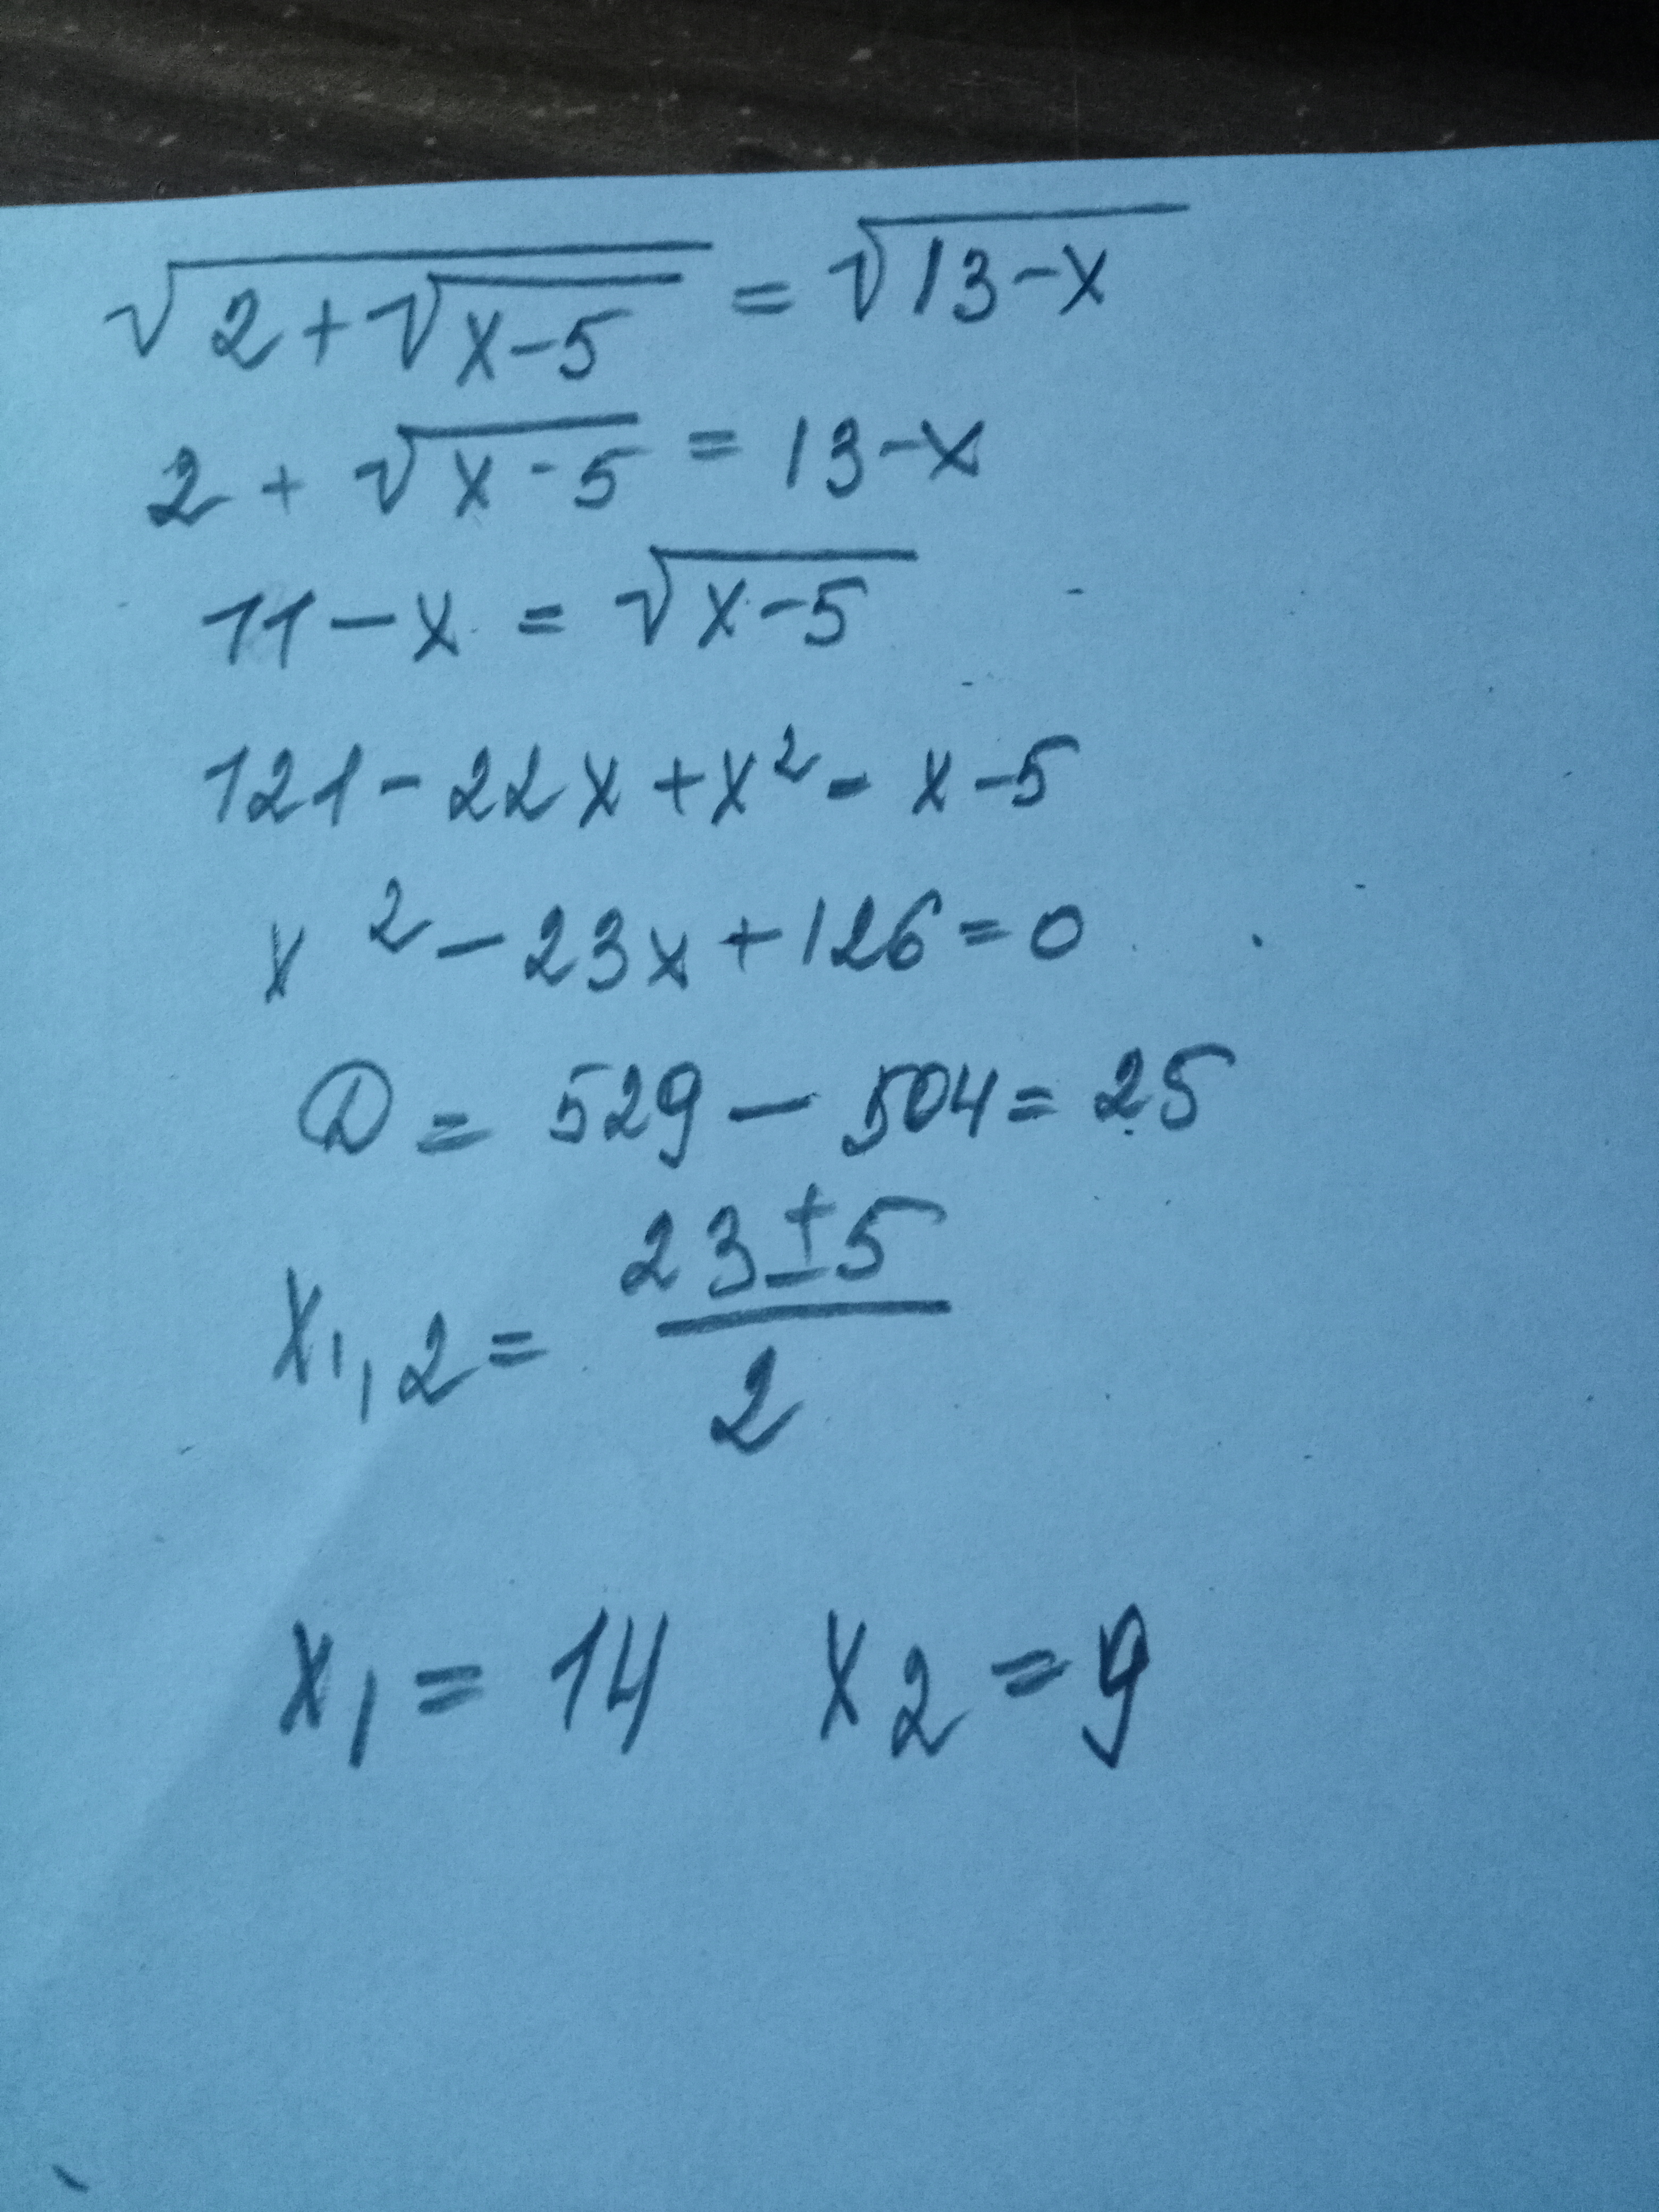 √(2+√(x-5)) = √(13-x)
2 + √(x-5) = 13-x
11-x = √(x-5)
121-22x+x² = x-5
x²-23x+126=0
D = 529-504=25
x₁,₂ = (23±5)/2
x₁ = 14 x₂ = 9